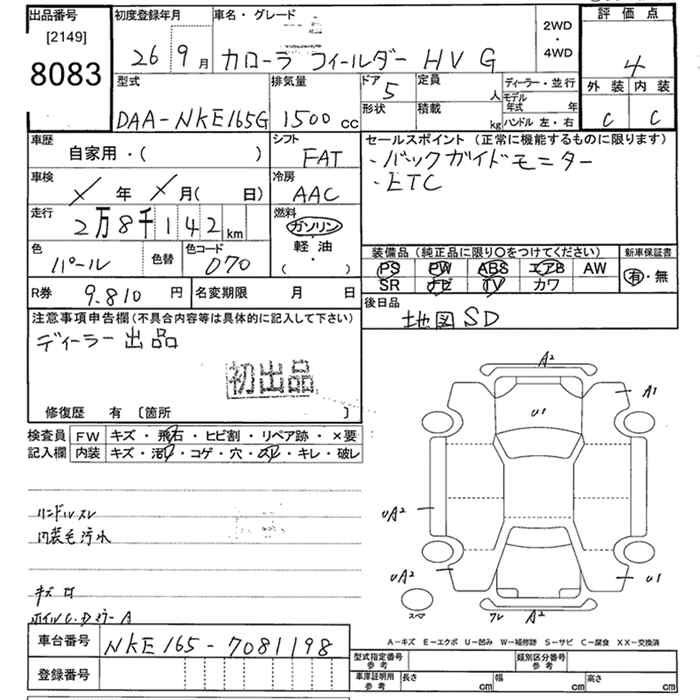 出品番号
[2149]
8083
初度登録年月
26 9月
車名・グレード
カローラ フィールダー HV G
2WD
・
4WD
評価点
4
外装 内装
C C
型式
DAA-NKE165G
排気量
1500 cc
ドア 5
定員 人
形状
積載 kg
ディーラー・並行
モデル年式 年
ハンドル 左・右
車歴
自家用・( )
シフト
FAT
車検
年 月( 日)
冷房
AAC
走行
2万8千142 km
燃料
ガソリン
・
軽油
( )
色
パール
色替
色コード
070
R券 9.810 円
名変期限 月 日
セールスポイント (正常に機能するものに限ります)
・バックガイドモニター
・ETC
装備品 (純正品に限り○をつけてください)
新車保証書
PS PW ABS エアB AW
SR ナビ TV カワ
有・無
後日品
地図SD
注意事項申告欄 (不具合内容等は具体的に記入して下さい)
ディーラー出品
初出品
修復歴 有 〔箇所 〕
検査員
記入欄
FW キズ・飛石・ヒビ割・リペア跡・×要
内装 キズ・汚れ・コゲ・穴・スレ・キレ・破レ
ハンドルスレ
内装毛汚れ
A2
A1
U1
UA2
UA2
U1
スペア
A2
A-キズ E-エクボ U-凹み W-補修跡 S-サビ C-腐食 XX-交換済
車台番号 NKE165-7081198
登録番号
型式指定番号
参考
類別区分番号
参考
車庫証明用
参考
長さ cm
幅 cm
高さ cm